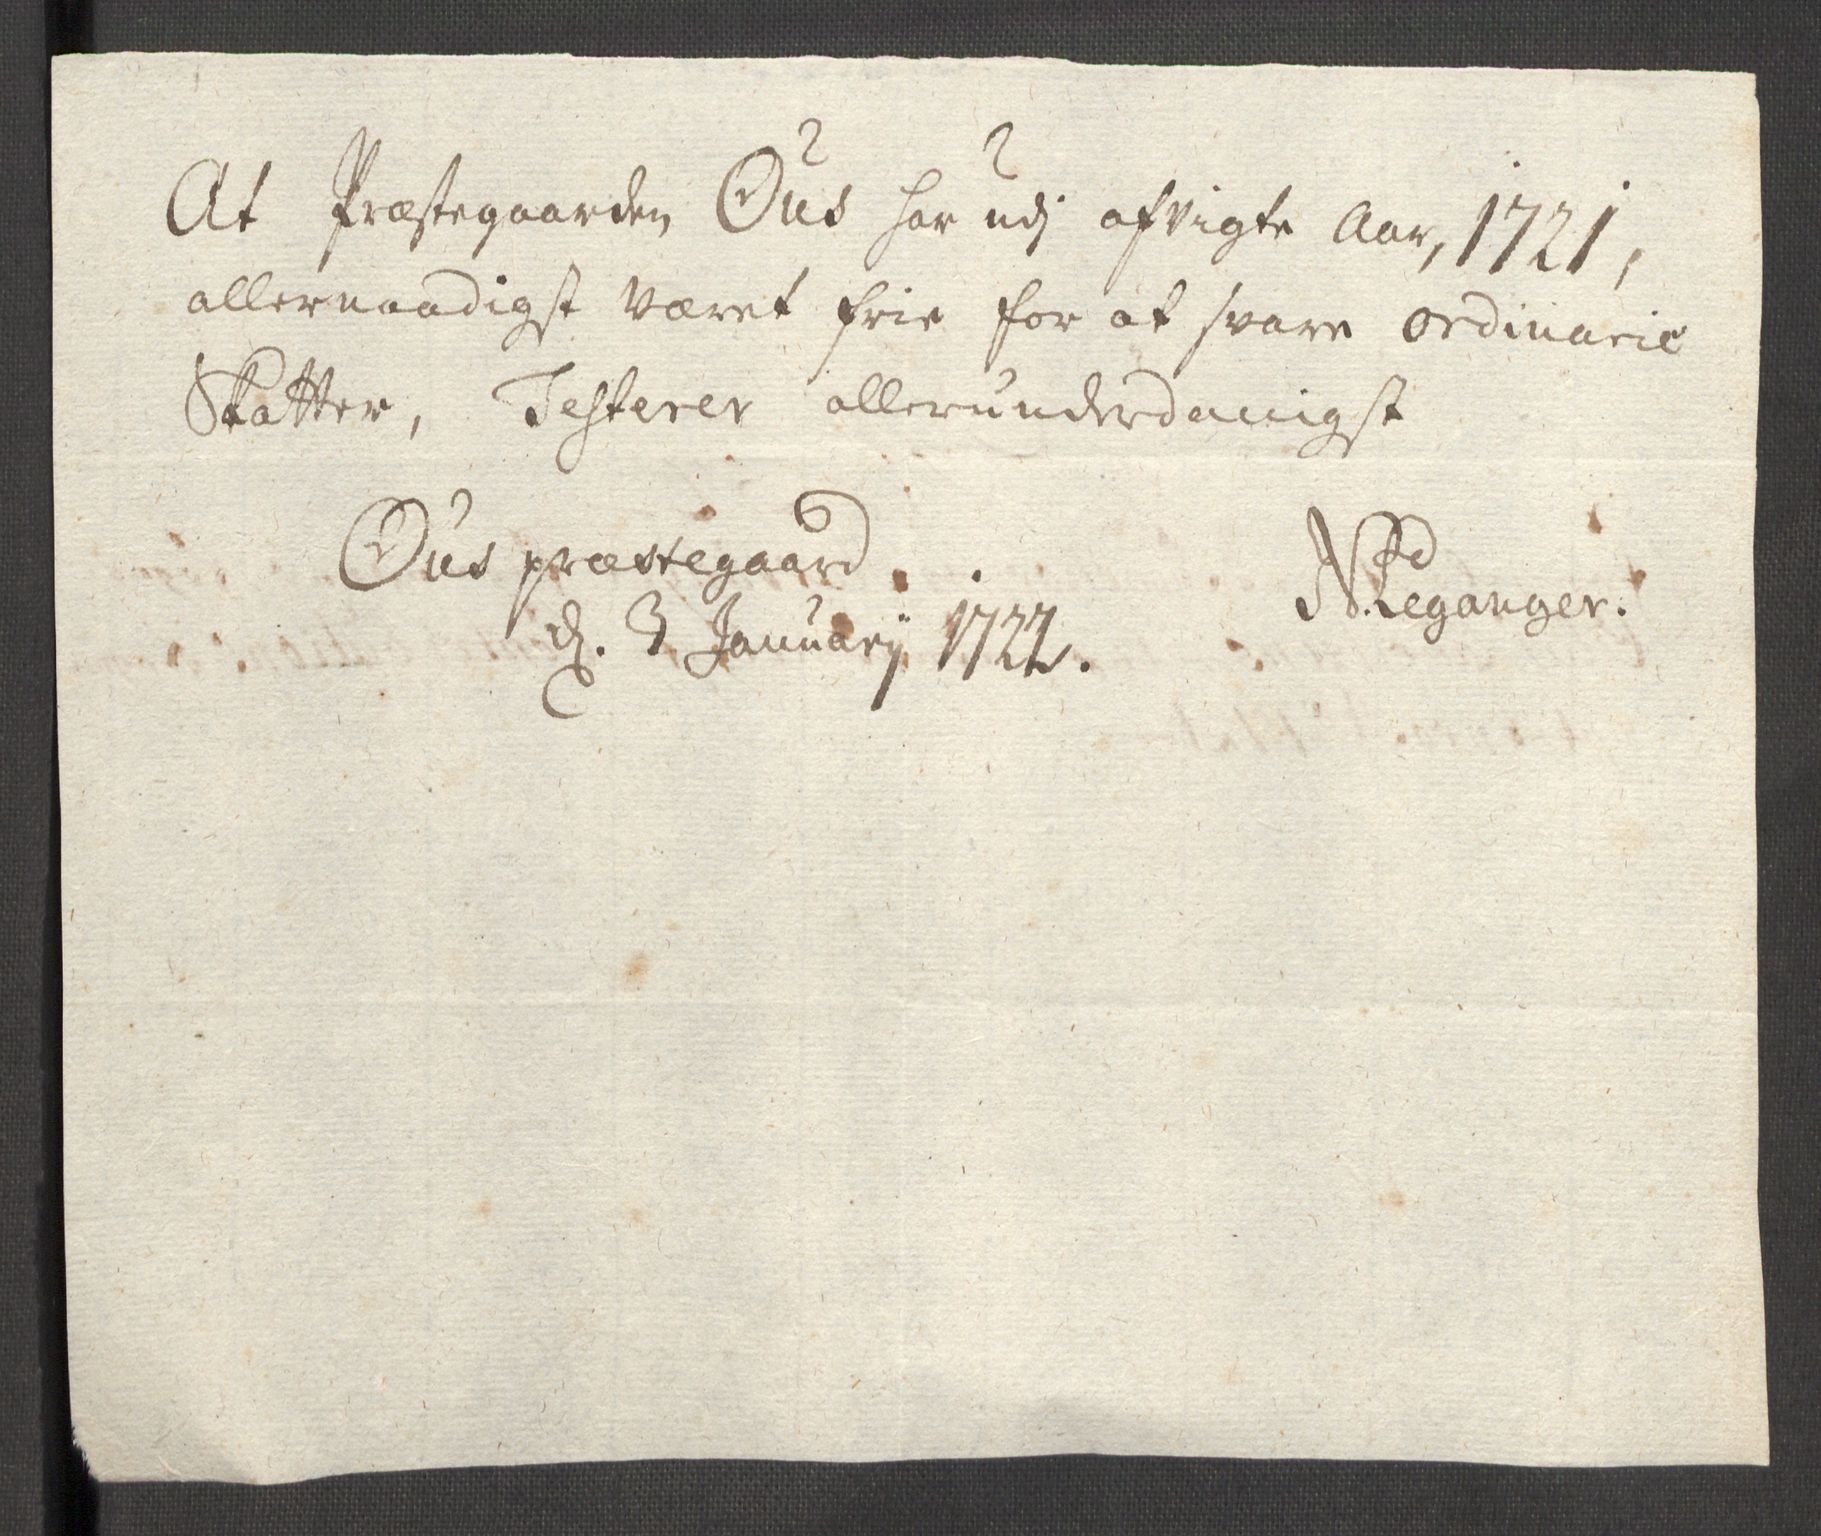 At Præstegaarden Øus har udj afvigte Aar, 1721,
allernaadigst været frie for at svare ordinarie
Skatter, Testerer allerunderdanigst
Øus præstegaard
d. 3 Januarij 1722.
N. Leganger.